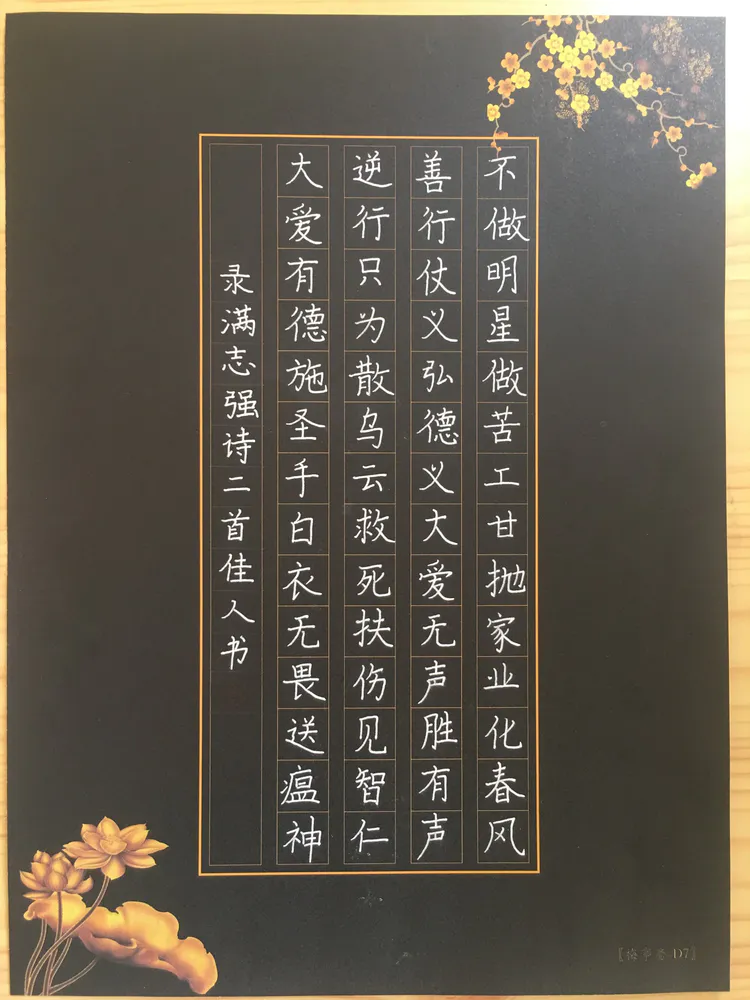 不做明星做苦工甘抛家业化春风
善行仗义弘德义大爱无声胜有声
逆行只为散乌云救死扶伤见智仁
大爱有德施圣手白衣无畏送瘟神
录满志强诗二首佳人书
D7